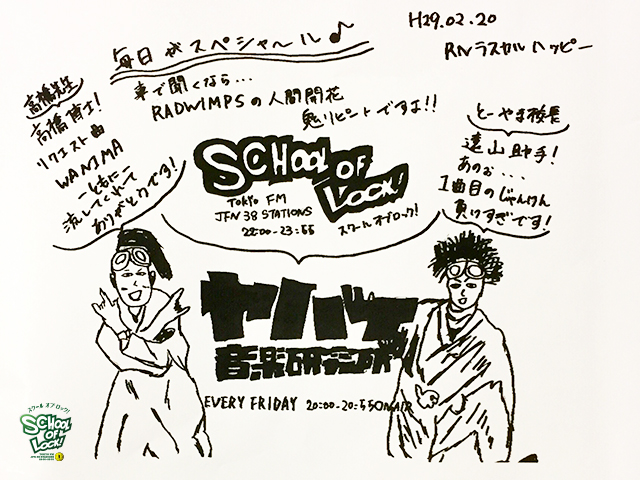 H29.02.20
RNラスカルハッピー
毎日がスペシャ〜ル♪
車で聞くなら...
RADWIMPSの人間開花
鬼リピートですよ!!
高橋先生
高橋博士!
リクエスト曲
WANIMA
ともに
流してくれて
ありがとうです!
とーやま校長
遠山助手!
あのぉ...
1曲目のじゃんけん
負けすぎです!
SCHOOL
OF
LOCK!
TOKYO FM
JFN 38 STATIONS
22:00-23:55
スクールオブロック!
ヤバイ
音楽研究所
EVERY FRIDAY 20:00-20:55 ON AIR
スクール オブ ロック!
SCHOOL
OF
LOCK!